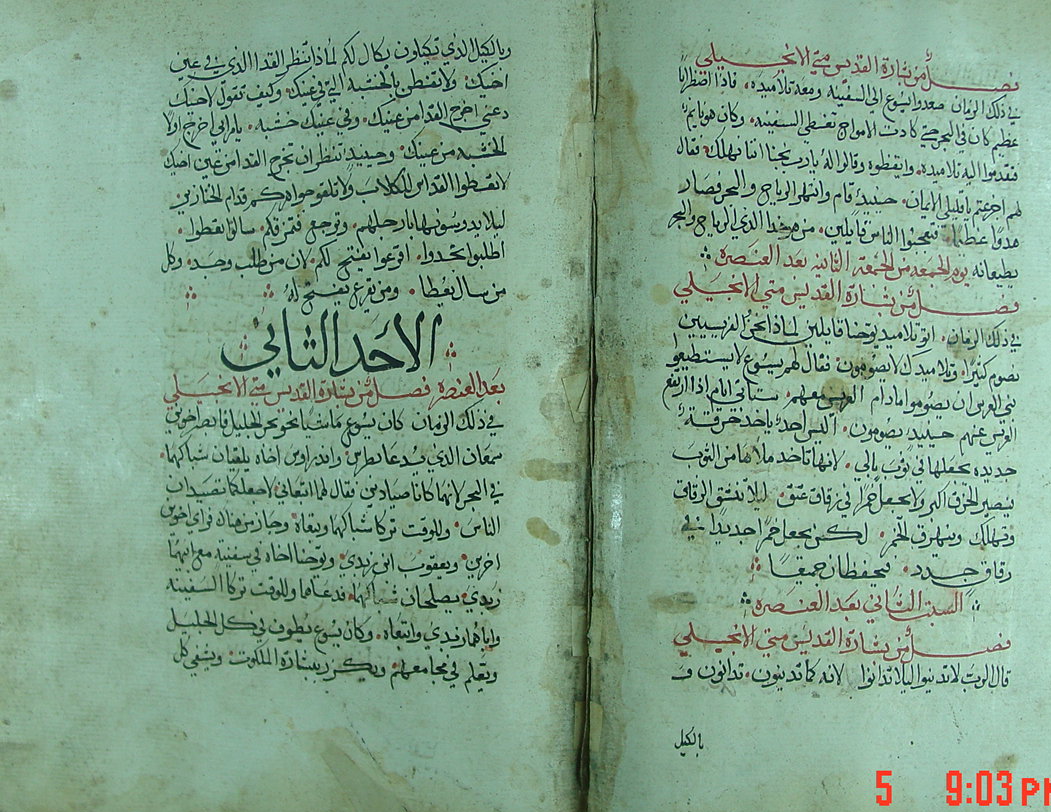 فصل من بشارة القديس متي الانجيلي
في ذلك الزمان صعد يسوع الي السفينه ومعه تلاميذه. فاذا اضطرابا
عظيم كان في البحر حتي كادت الامواج تغطي السفينه. وكان هو نايم
فتقدموا اليه تلاميذه. وايقظوه وقالوا له يارب نجنا اننا نهلك. فقال
لهم اجزعتم يا قليلي الايمان. حينيذ قام وانتهر الرياح والبحر فصار
هدوا عظيما. فتعجبوا الناس قايلين. من هو هذا الذي الرياح والبحر
يطيعانه يوم الجمعه من الجمعة الثانيه بعد العنصره
فصل من بشارة القديس متي الانجيلي
في ذلك الزمان. اتو تلاميد يوحنا قايلين لماذا نحن الفريسيين
نصوم كثيرا. وتلاميذك لا يصومون. فقال لهم يسوع لا يستطيعوا
بني العرس ان يصوموا مادام العريس معهم. ستاتي ايام اذا ارتفع
العريس عنهم حينيذ يصومون. اليس احد ياخد خرقة
جديده يجعلها في توب بالي. لانها تاخد ملاها من التوب
فيصير الخزق اكبر ولا يجعل خمرا في زقاق عتق. ليلا تنشق الزقاق
وتهلك وتنهرق الخمر. لكن يجعل خمرا جديدا في
زقاق جدد. فيحفظان جميعا
السبت الثاني بعد العنصره
فصل من بشارة القديس متي الانجيلي
قال الرب لا تدينوا ليلا تدانوا لانه كما تدينون. تدانون و
بالكيل
وبالكيل الذي تكيلون يكال لكم لماذا تنظر القدا الذي في عين
اخيك. ولا تفطن بالخشبه التي في عينك. وكيف تقول لاخيك
دعني اخرج القدا من عينك. وفي عينك خشبه. يا مرايي اخرج اولا
الخشبه من عينك وحينيذ تنظر ان تخرج القدا من عين اخيك
لا تعطوا القدس للكلاب ولا تلقوا جواهركم قدام الخنازير
ليلا يدوسونها بارجلهم. وترجع فتمزقكم. سالوا تعطوا.
اطلبوا تجدوا. اقرعوا يفتح لكم. لان من طلب وجد. وكل
من سال يعطا. ومن يقرع يفتح له
الاحد الثاني
بعد العنصره فصل من بشارة القديس متي الانجيلي
في ذلك الزمان كان يسوع ماشيا نحو بحر الجليل فابصر اخوين
سمعان الذي يدعا بطرس واندراوس اخاه يلقيان شباكهما
في البحر لانهما كانا صيادين فقال لهما اتبعاني لاجعلكما تصيدان
الناس. وللوقت تركا شباكهما وتبعاه. وجاز من هناك فراي اخوين
اخرين. ويعقوب ابن زبدي. ويوحنا اخاه في سفينه مع ابيهما
زبدي يصلحان شباكهما. فدعاهما وللوقت تركا السفينه
واباهما زبدي واتبعاه. وكان يسوع يطوف في كل الجليل
ويعلم في مجامعهم ويكرز ببشارة الملكوت. ويشفي كل
5 9:03 PM